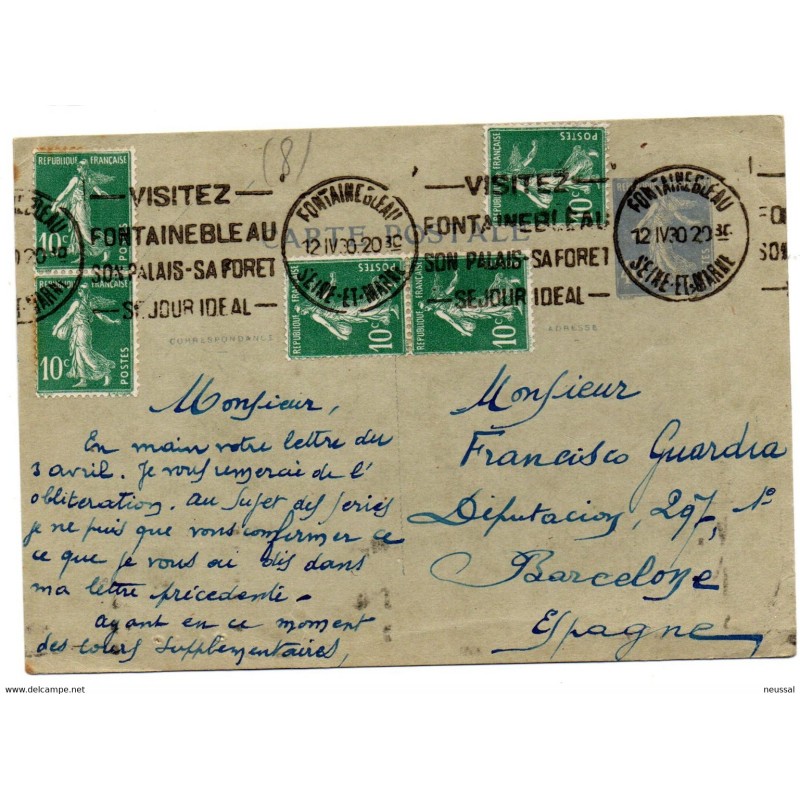 (8)
REPUBLIQUE FRANÇAISE
10c
POSTES
REPUBLIQUE FRANÇAISE
10c
POSTES
REPUBLIQUE FRANÇAISE
10c
POSTES
REPUBLIQUE FRANÇAISE
10c
POSTES
REPUBLIQUE FRANÇAISE
10c
POSTES
VISITEZ
FONTAINEBLEAU
SON PALAIS-SA FORET
SEJOUR IDEAL
FONTAINEBLEAU
12 IV30-20 30
SEINE-ET-MARNE
VISITEZ
FONTAINEBLEAU
SON PALAIS-SA FORET
SEJOUR IDEAL
FONTAINEBLEAU
12 IV30 20 30
SEINE-ET-MARNE
CARTE POSTALE
CORRESPONDANCE
ADRESSE
Monsieur,
En main votre lettre du
3 avril. Je vous remercie de l'
obliteration. Au sujet des series
je ne puis que vous confirmer ce
ce que je vous ai dis dans
ma lettre précédente -
ayant en ce moment
des cours supplementaires,
Monsieur
Francisco Guardia
Députacion, 297, 1º
Barcelone
Espagne
www.delcampe.net
neussal